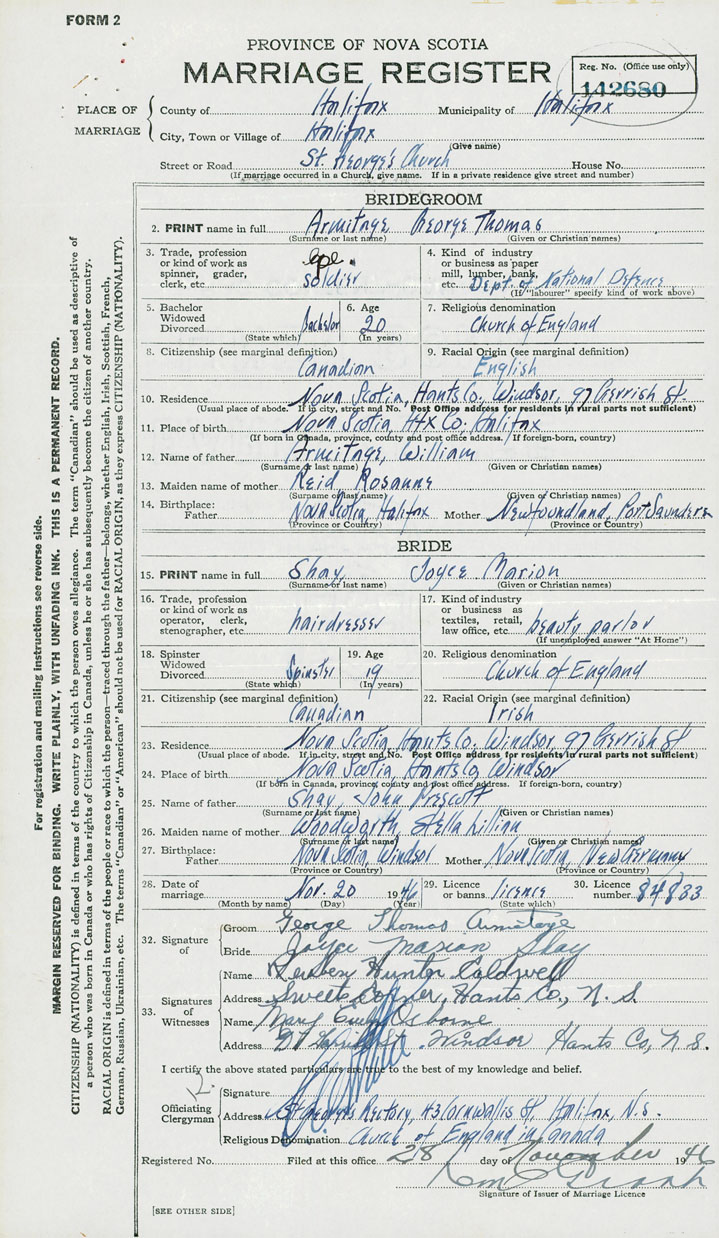 FORM 2
PROVINCE OF NOVA SCOTIA
MARRIAGE REGISTER
Reg. No. (Office use only)
142680
PLACE OF MARRIAGE
County of Halifax Municipality of Halifax
City, Town or Village of Halifax
(Give name)
Street or Road St. George's Church House No.
(If marriage occurred in a Church, give name. If in a private residence give street and number)
BRIDEGROOM
2. PRINT name in full Armitage George Thomas
(Surname or last name) (Given or Christian names)
3. Trade, profession or kind of work as spinner, grader, clerk, etc. soldier
4. Kind of industry or business as paper mill, lumber, bank, etc. Dept. of National Defence
(If "labourer" specify kind of work above)
5. Bachelor Widowed Divorced Bachelor
(State which)
6. Age 20
(In years)
7. Religious denomination
Church of England
8. Citizenship (see marginal definition)
Canadian
9. Racial Origin (see marginal definition)
English
10. Residence Nova Scotia, Hants Co. Windsor, 97 Gerrish St.
(Usual place of abode. If in city, street and No. Post Office address for residents in rural parts not sufficient)
11. Place of birth Nova Scotia, Hfx Co. Halifax
(If born in Canada, province, county and post office address. If foreign-born, country)
12. Name of father Armitage, William
(Surname or last name) (Given or Christian names)
13. Maiden name of mother Reid, Rosanne
(Surname or last name) (Given or Christian names)
14. Birthplace: Father Nova Scotia, Halifax Mother Newfoundland, Port Saunders
(Province or Country) (Province or Country)
BRIDE
15. PRINT name in full Shay, Joyce Marion
(Surname or last name) (Given or Christian names)
16. Trade, profession or kind of work as operator, clerk, stenographer, etc. hairdresser
17. Kind of industry or business as textiles, retail, law office, etc. beauty parlor
(If unemployed answer "At Home")
18. Spinster Widowed Divorced Spinster
(State which)
19. Age 19
(In years)
20. Religious denomination
Church of England
21. Citizenship (see marginal definition)
Canadian
22. Racial Origin (see marginal definition)
Irish
23. Residence Nova Scotia, Hants Co. Windsor, 97 Gerrish St
(Usual place of abode. If in city, street and No. Post Office address for residents in rural parts not sufficient)
24. Place of birth Nova Scotia, Hants Co, Windsor
(If born in Canada, province, county and post office address. If foreign-born, country)
25. Name of father Shay, John Prescott
(Surname or last name) (Given or Christian names)
26. Maiden name of mother Woodworth, Stella Lillian
(Surname or last name) (Given or Christian names)
27. Birthplace: Father Nova Scotia, Windsor Mother Nova Scotia, New Germany
(Province or Country) (Province or Country)
28. Date of marriage Nov. 20 1946
(Month by name) (Day) (Year)
29. Licence or banns licence
(State which)
30. Licence number 84833
32. Signature of
Groom George Thomas Armitage
Bride Joyce Marion Shay
33. Signatures of Witnesses
Name Hunter Caldwell
Address Sweets Corner, Hants Co., N. S.
Name Mary Osborne
Address 97 Gerrish St. Windsor Hants Co, N. S.
I certify the above stated particulars are true to the best of my knowledge and belief.
Officiating Clergyman
Signature
Address St George's Rectory, 43 Cornwallis St, Halifax, N.S.
Religious Denomination Church of England in Canada
Registered No. Filed at this office 28 day of November 1946
Signature of Issuer of Marriage Licence
[SEE OTHER SIDE]
For registration and mailing instructions see reverse side.
MARGIN RESERVED FOR BINDING. WRITE PLAINLY, WITH UNFADING INK. THIS IS A PERMANENT RECORD.
CITIZENSHIP (NATIONALITY) is defined in terms of the country to which the person owes allegiance. The term "Canadian" should be used as descriptive of
a person who was born in Canada or who has rights of Citizenship in Canada, unless he or she has subsequently become the citizen of another country.
RACIAL ORIGIN is defined in terms of the people or race to which the person—traced through the father—belongs, whether English, Irish, Scottish, French,
German, Russian, Ukrainian, etc. The terms "Canadian" or "American" should not be used for RACIAL ORIGIN, as they express CITIZENSHIP (NATIONALITY).